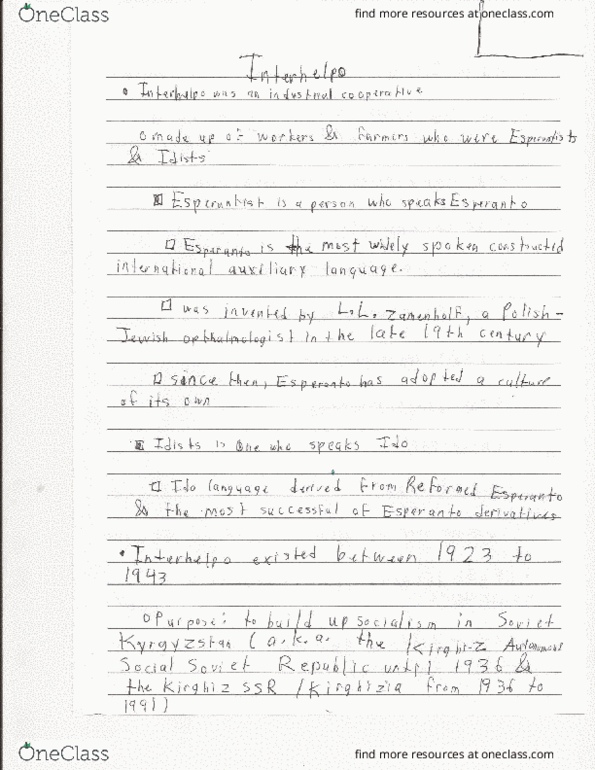 OneClass
find more resources at oneclass.com
Interhelpo
• Interhelpo was an industrial cooperative
o made up of workers & farmers who were Esperantists
& Idists
▪ Esperantist is a person who speaks Esperanto
□ Esperanto is the most widely spoken constructed
international auxiliary language.
□ was invented by L.L. Zamenholf, a Polish-
Jewish opthalmologist in the late 19th century
□ since then, Esperanto has adopted a culture
of its own
▪ Idists is one who speaks Ido
□ Ido language derived from Reformed Esperanto
& the most successful of Esperanto derivatives
• Interhelpo existed between 1923 to
1943
o Purpose: to build up socialism in Soviet
Kyrgyzstan (a.k.a. the Kirghiz Autonomous
Social Soviet Republic until 1936 &
the Kirghiz SSR /Kirghizia from 1936 to
1991)
OneClass
find more resources at oneclass.com